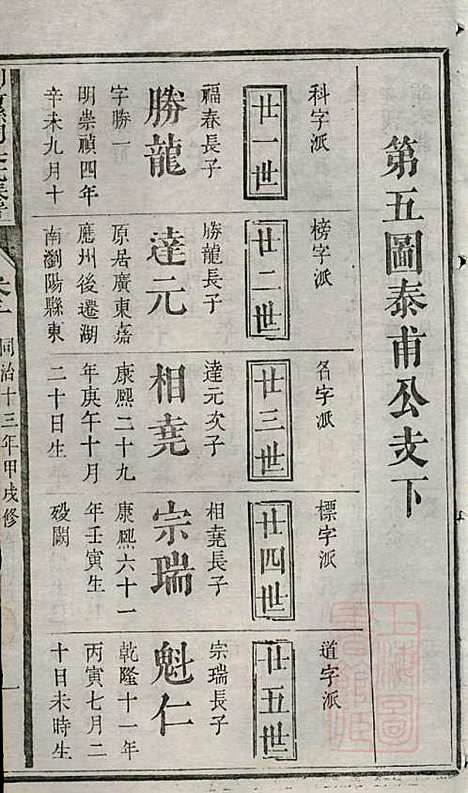 第五圖泰甫公支下
科字派
廿一世
福春長子
勝龍
字勝一
明崇禎四年
辛未九月十
榜字派
廿二世
勝龍長子
達元
原居廣東嘉
應州後遷湖
南瀏陽縣東
名字派
廿三世
達元次子
相堯
康熙二十九
年庚午十月
二十日生
標字派
廿四世
相堯長子
宗瑞
康熙六十一
年壬寅生
歿闕
道字派
廿五世
宗瑞長子
魁仁
乾隆十一年
丙寅七月二
十日未時生
同治十三年甲戌修